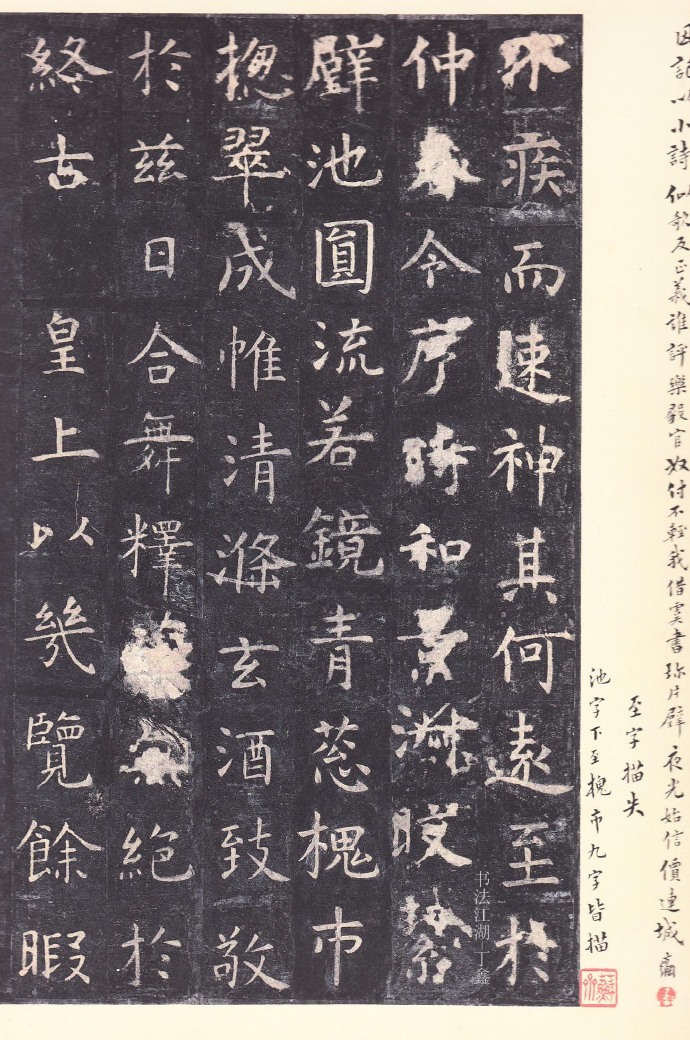 不疾而速神其何遠至於
仲春令序時和景淑皎
璧池圓流若鏡青葱槐市
揔翠成帷清滌玄酒致敬
於兹日合舞釋菜無絕於
終古 皇上以幾覽餘暇
小詩
似歌及正義誰評樂毅官奴付不輕我借虞書珎片璧夜光始信價連城
至字描失
池字下至槐市九字皆描
书法江湖 丁鑫